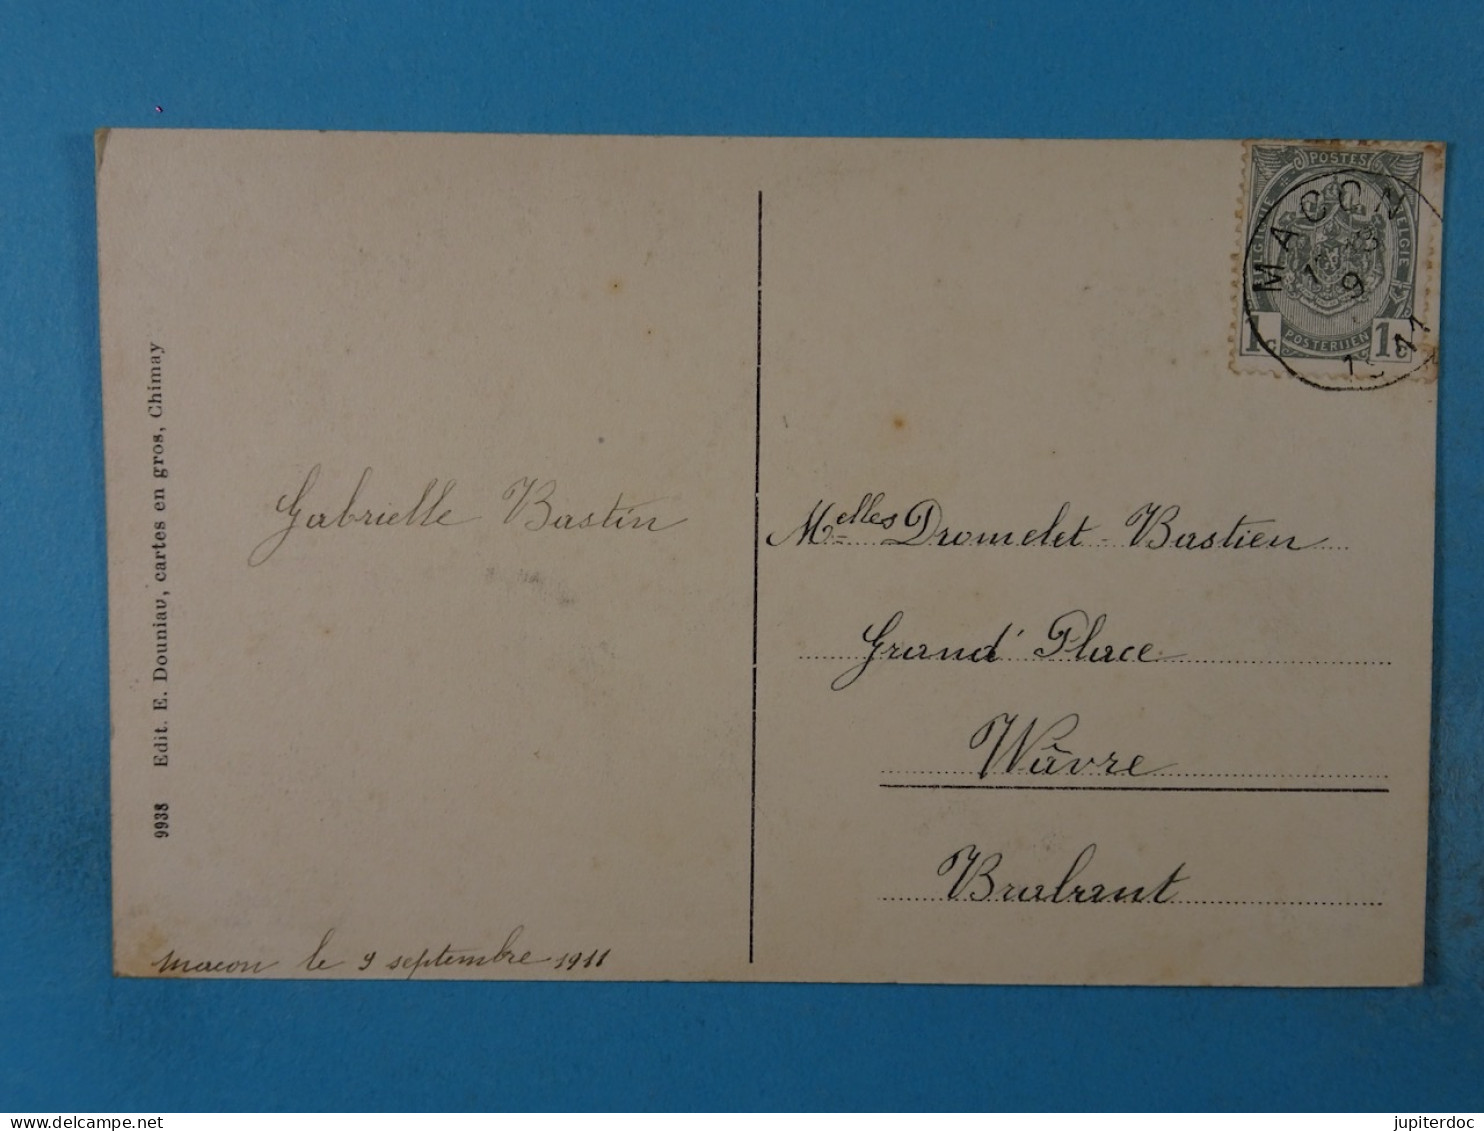 9938 Edit. E. Douniau, cartes en gros, Chimay
Gabrielle Bastin
Macon le 9 septembre 1911
POSTES
BELGIQUE
BELGIË
1c POSTERIJEN 1c
MACON
9
11
Melles Dromelet-Bastien
Grand' Place
Wâvre
Brabant
jupiterdoc